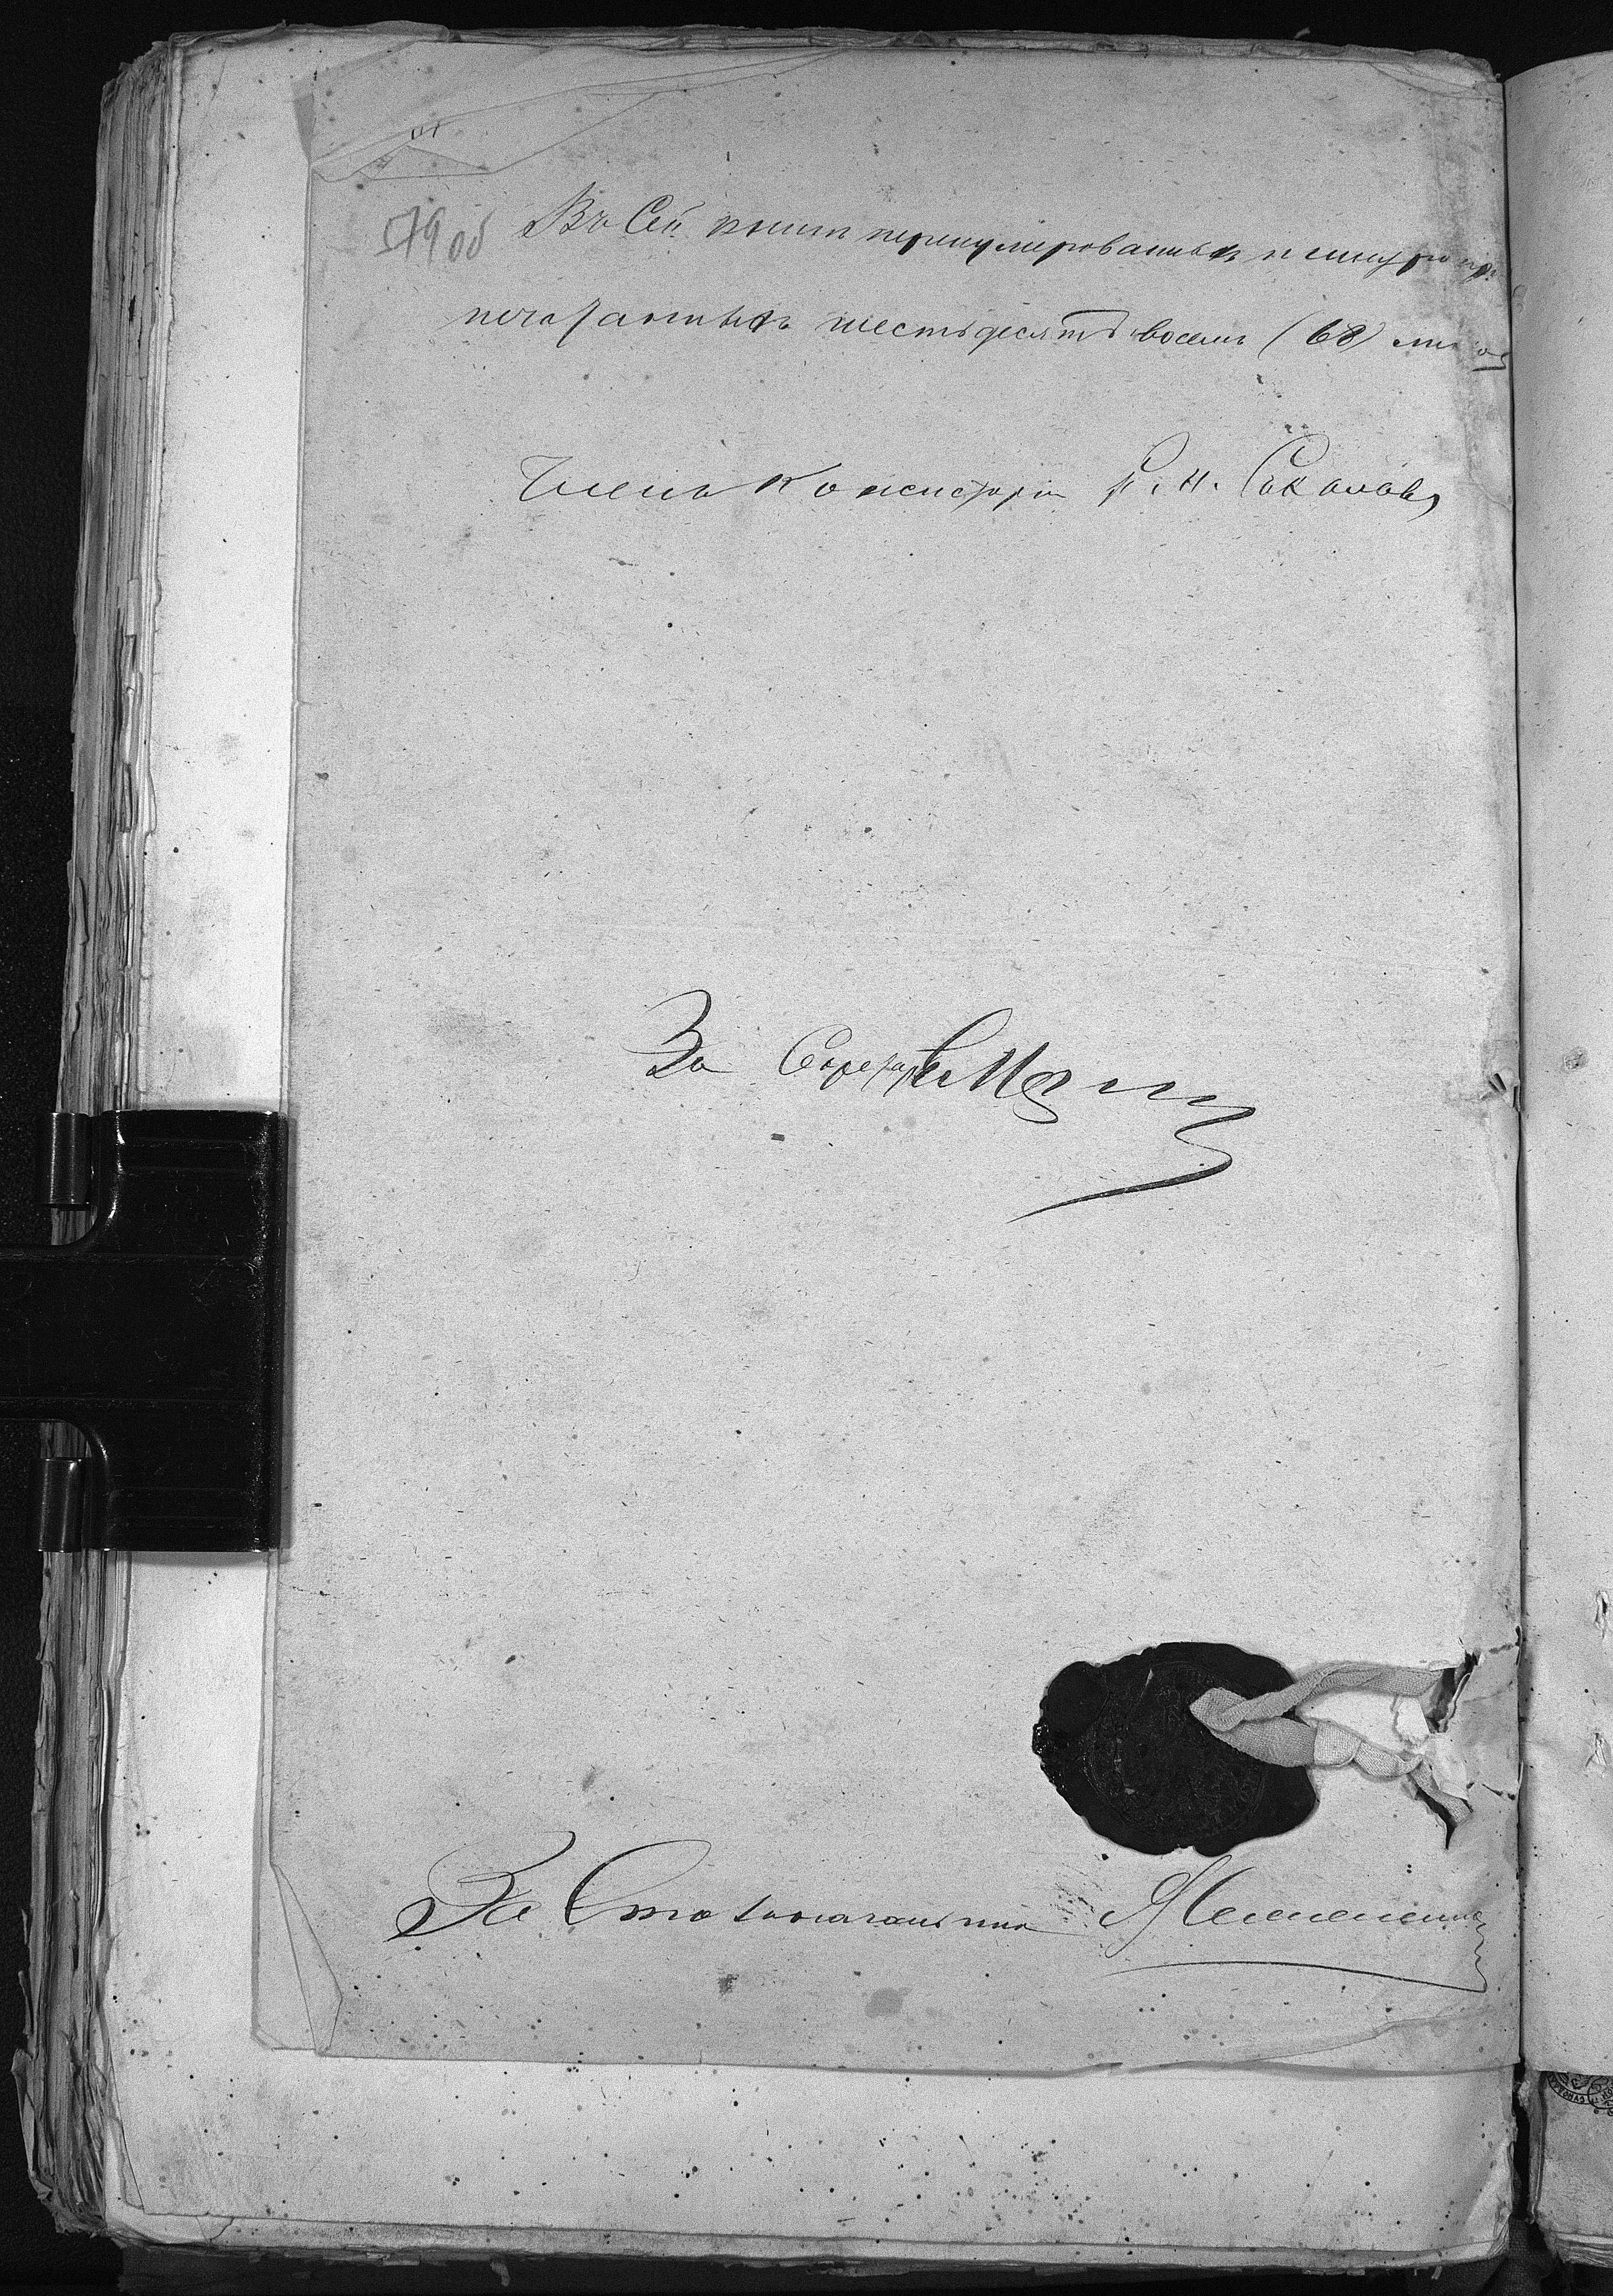 79 об
Въ Сей книги перенумерованныхъ и шнуро при
печатанныхъ шестьдесятъ восемь (68) листовъ
Членъ Консисторіи
За Секретаря
За Столоначальника